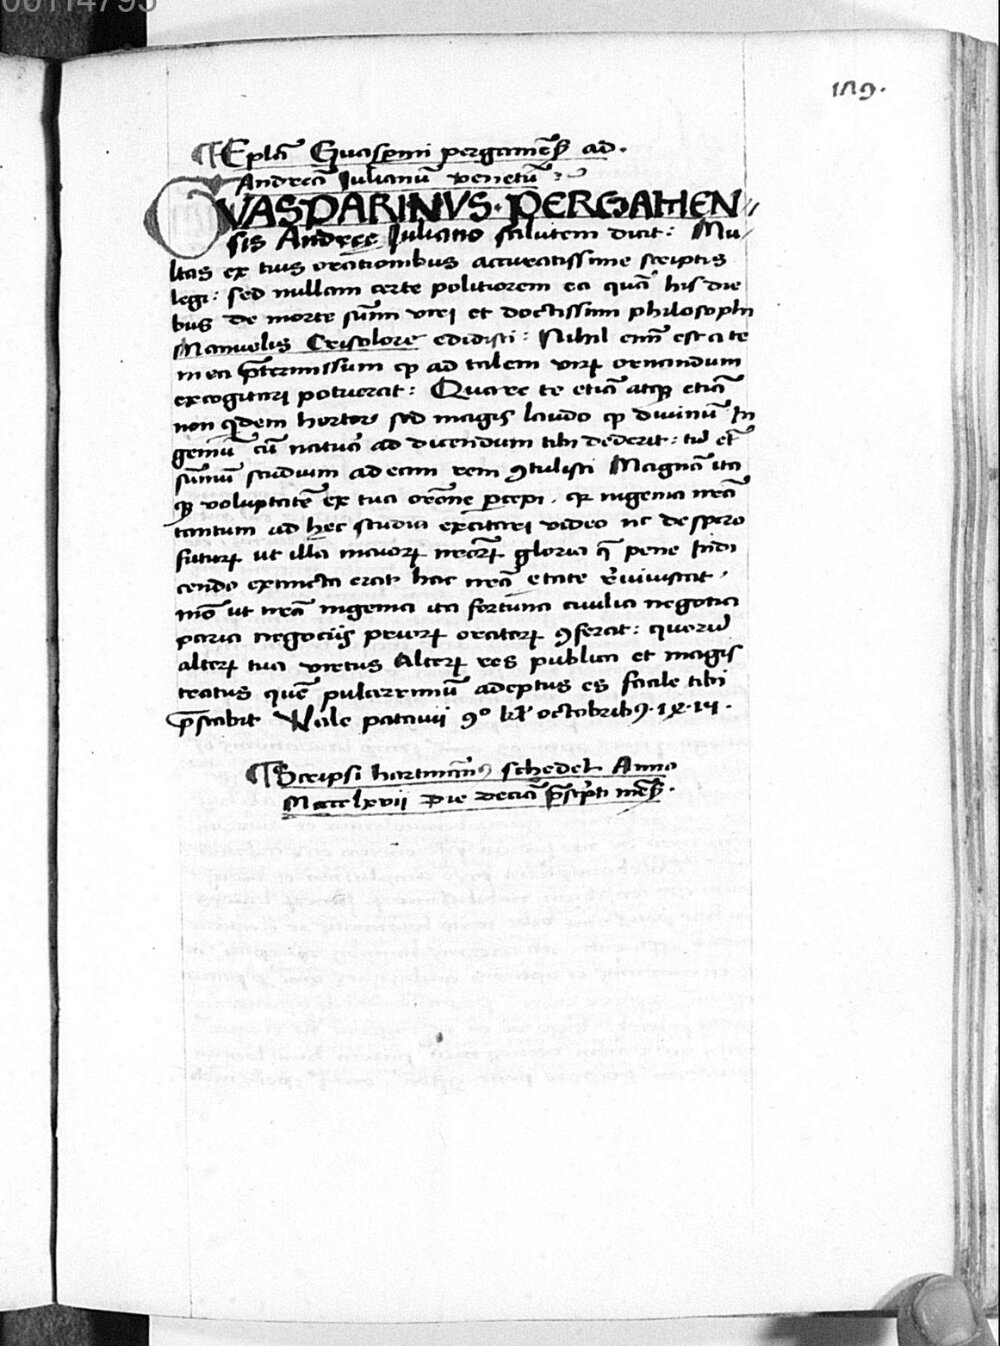 00114795
189.
¶ Epl̄a Guasp̄ini pergamēs̄ ad.
Andreā Iulianū venetū :~
GVASPARINVS · PERGAMEN//
sis Andree Iuliano salutem dicit : Mu/
ltas ex tuis orationibus accuratissime scriptis
legi : sed nullam certe politiorem ea quā his die
bus de morte sūmi viri et doctissimi philosophi
Manuelis Crisolore edidisti : Nihil em̄ est a te
in ea p̄termissum qꝫ ad talem virꝝ ornandum
excogitari potuerat : Quare te etiā atqꝫ etiā
non qͥdem hortor sed magis laudo qꝫ divinū In
geniū cū natura ad dicendum tibi dederit : tu et̄
sūmū studium ad eam rem ꝯtulisti Magnā ita
qꝫ voluptatē ex tua orōne p̱cepi . qꝛ ingenia nr̄a
tantum ad hec studia excitari video
futurꝝ ut illa maiorꝝ nr̄orꝝ gloria q̄ pene Indi
cendo extincta erat hac nr̄a etate
mō ut nr̄a ingenia ita fortuna civilia negotia
paria negociis priorꝝ oratorꝝ ꝯferat : quorū
alterꝝ tua virtus Alterꝝ res publica et magis
tratus quē pulcerrimū adeptus es facile tibi
p̄stabit Vale patavii 9º kl̄ octobribꝰ
¶ Scripsi hartmānꝰ schedel Anno
Mcccclxvii Die decīa p̄scp̄ti mēs̄ .